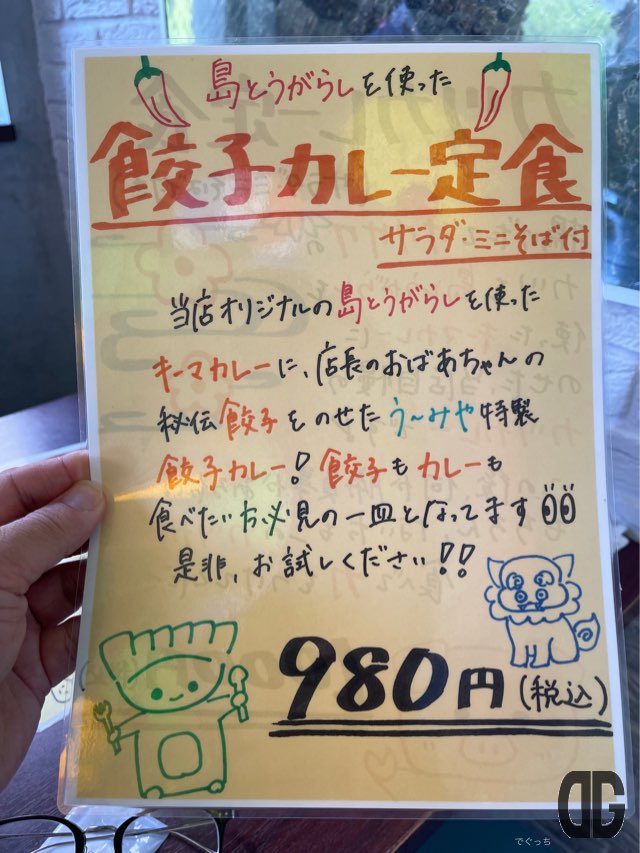 島とうがらしを使った
餃子カレー定食
サラダ・ミニそば付
当店オリジナルの島とうがらしを使った
キーマカレーに、店長のおばあちゃんの
秘伝餃子をのせたう〜みや特製
餃子カレー!餃子もカレーも
食べたい方必見の一皿となってます
是非、お試しください!!
980円(税込)
DG
でぐっち